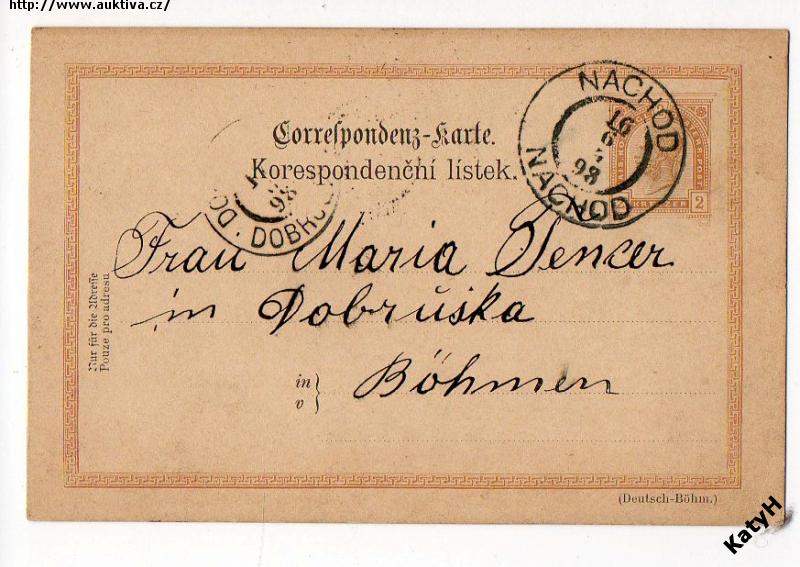 http://www.auktiva.cz/
NACHOD
NÁCHOD
16
98
Correspondenz-Karte.
Korespondenční lístek.
2 KREUZER 2
98
DOBRUS
Frau Maria Senzer
in Dobruška
in
v
Böhmen
Nur für die Adresse
Pouze pro adresu
(Deutsch-Böhm.)
KatyH